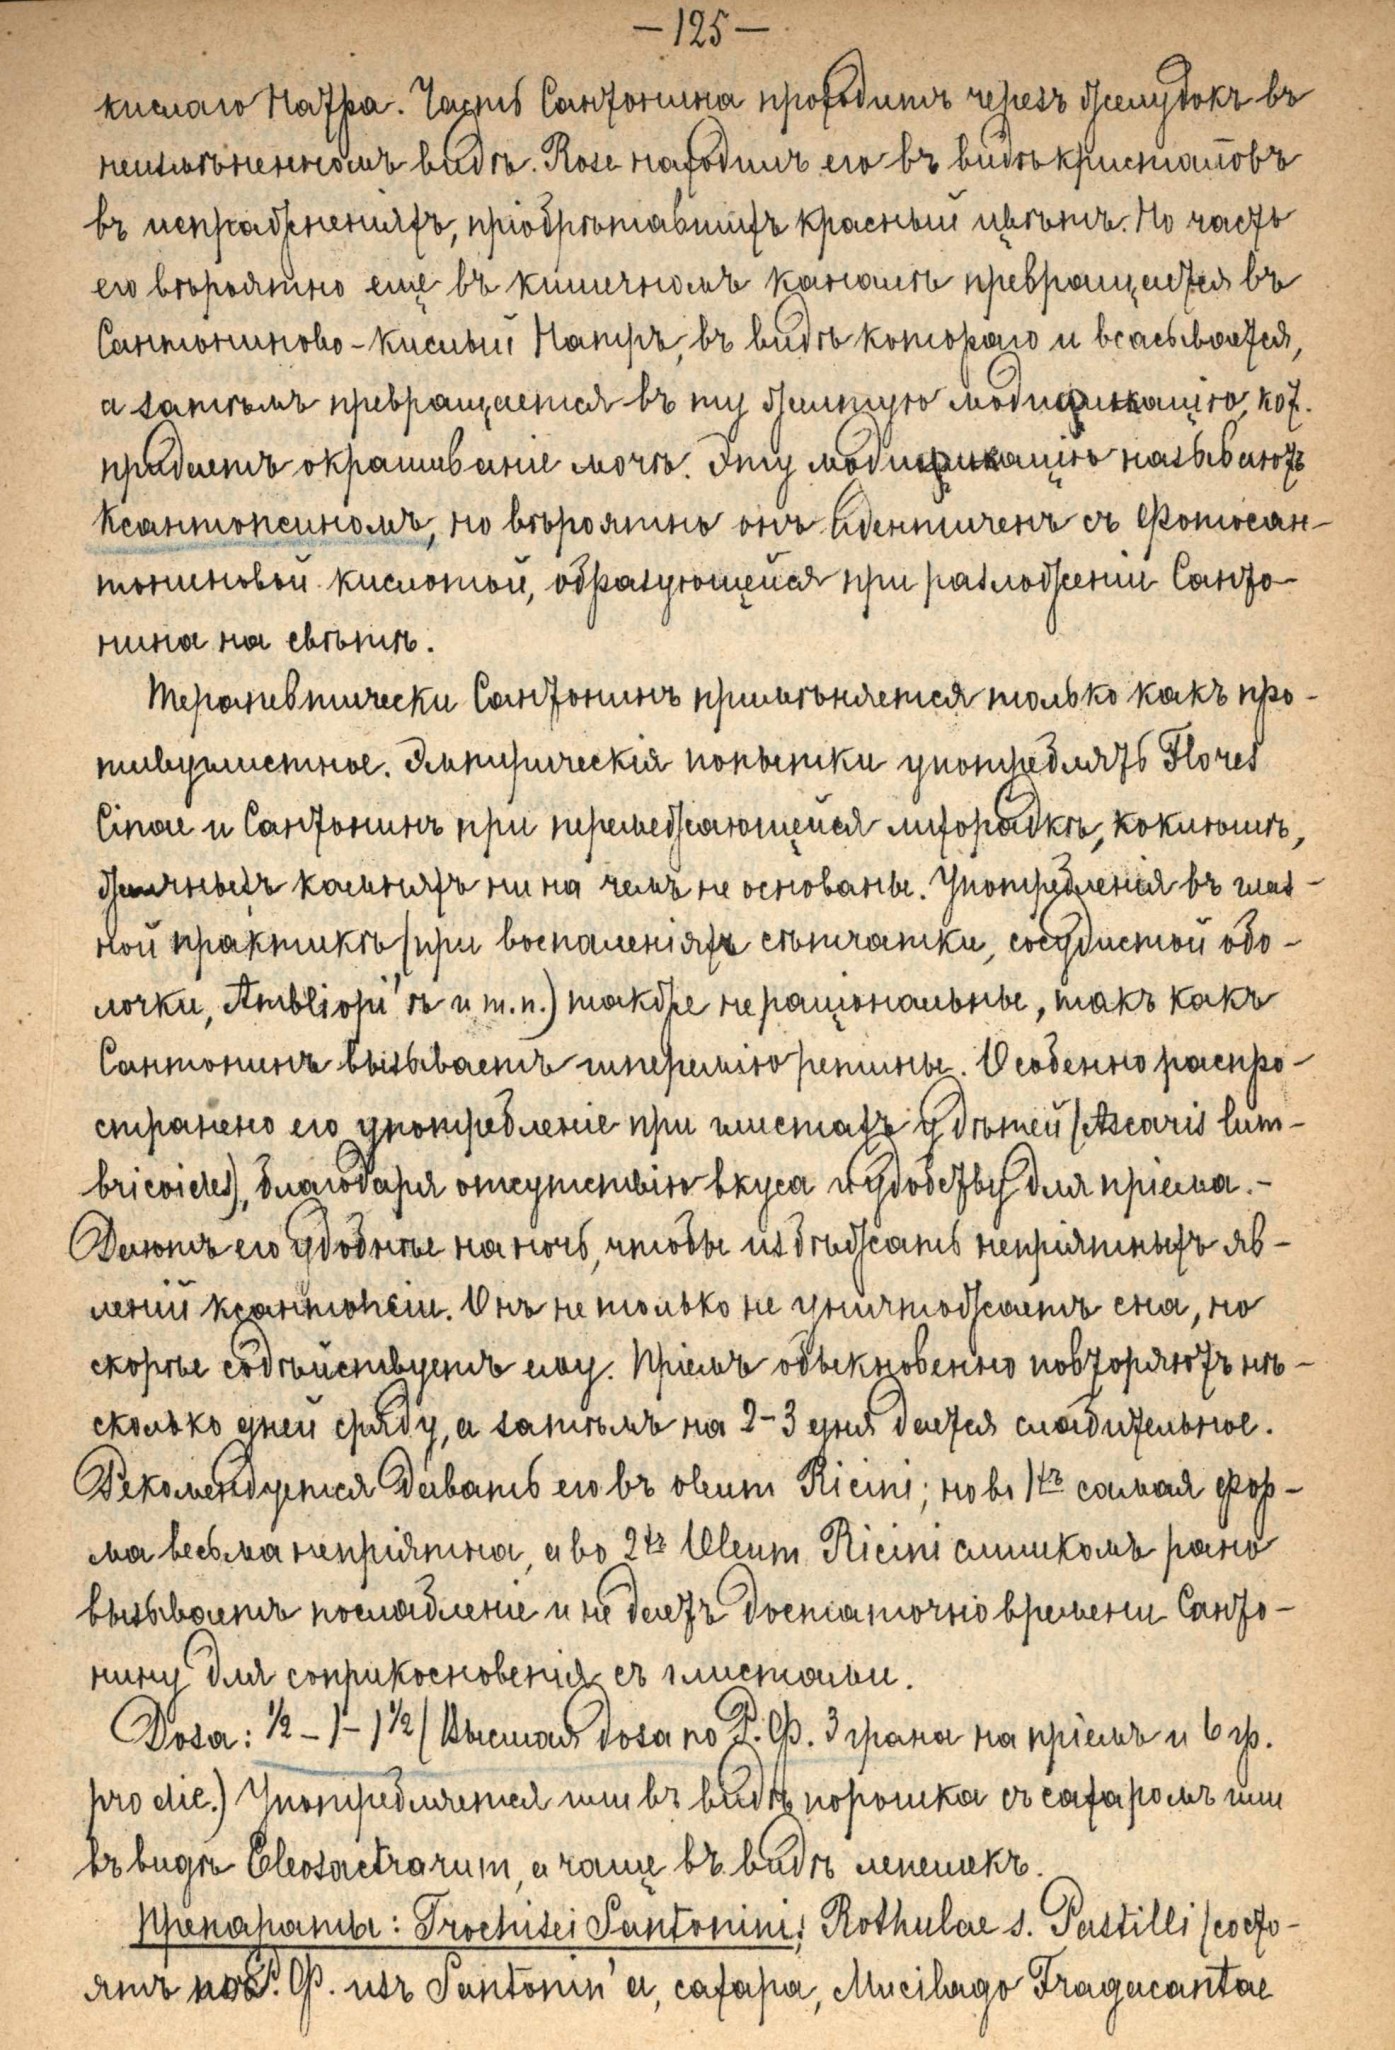 — 125 —
кислаго Натра. Часть Сантонина проходитъ черезъ желудокъ въ
неизмѣненномъ видѣ. Rose находилъ его въ видѣ кристалловъ
въ испражненіяхъ, пріобрѣтавшихъ красный цвѣтъ. Но часть
его вѣроятно еще въ кишечномъ каналѣ превращается въ
Сантониново-кислый Натръ, въ видѣ котораго и всасывается,
а затѣмъ превращается въ ту желтую модификацію, кот.
придаетъ окрашиваніе мочѣ. Эту модификацію называютъ
Ксантопсиномъ, но вѣроятно онъ идентиченъ съ Фотосан-
тониновой кислотой, образующейся при разложеніи Санто-
нина на свѣтѣ.
Терапевтически Сантонинъ примѣняется только какъ про-
тивуглистное. Эмпирическія попытки употреблять Flores
Cinae и Сантонинъ при перемежающейся лихорадкѣ, коклюшѣ,
желчныхъ камняхъ ни на чемъ не основаны. Употребленія въ глаз-
ной практикѣ (при воспаленіяхъ сѣтчатки, сосудистой обо-
лочки, Ambliopi'ѣ и т.п.) также не раціональны, такъ какъ
Сантонинъ вызываетъ гиперемію ретины. Особенно распро-
странено его употребленіе при глистахъ у дѣтей (Ascaris lum-
bricoides), благодаря отсутствію вкуса и удобству для пріема.-
Даютъ его удобнѣе на ночь, чтобы избѣжать непріятныхъ яв-
леній ксантопсіи. Онъ не только не уничтожаетъ сна, но
скорѣе содѣйствуетъ ему. Пріемъ обыкновенно повторяютъ нѣ-
сколько дней сряду, а затѣмъ на 2-3 дня дается слабительное.
Рекомендуется давать его въ oleum Ricini; но въ 1хъ самая фор-
ма весьма непріятна, а во 2хъ Oleum Ricini слишкомъ рано
вызываетъ послабленіе и не даетъ достаточно времени Санто-
нину для соприкосновенія съ глистами.
Dosa: ½ – 1 – 1½ (Высшая dosa по Р. Ф. 3 грана на пріемъ и 6 гр.
pro die.) Употребляется или въ видѣ порошка съ сахаромъ или
въ видѣ Eleosactrarum, а чаще въ видѣ лепешекъ.
Препараты: Trochisci Santonini; Rothulae s. Pastilli (состо-
ятъ по Р. Ф. изъ Santonin'a, сахара, Mucilago Tragacantae